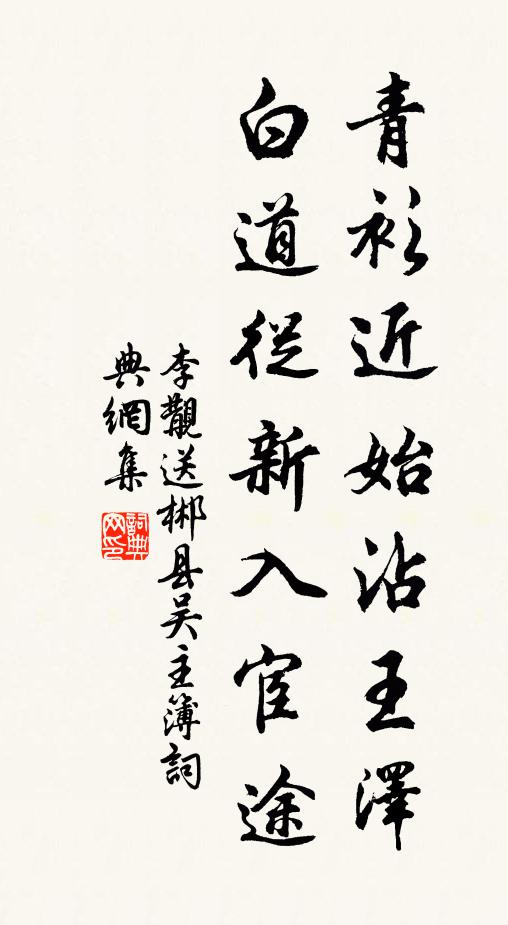 青衫近始沾王澤
白道從新入宦途
李覯送郴县吴主簿詞
典網集
詞典网印